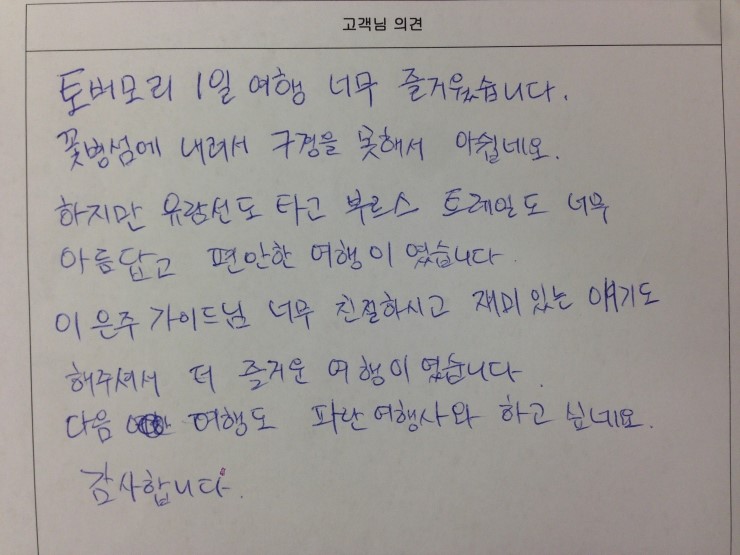 고객님 의견
토버모리 1일 여행 너무 즐거웠습니다.
꽃병섬에 내려서 구경을 못해서 아쉽네요.
하지만 유람선도 타고 부르스 트레일도 너무
아름답고 편안한 여행이 였습니다
이은주 가이드님 너무 친절하시고 재미있는 얘기도
해주셔서 더 즐거운 여행이 였습니다
다음 여행도 파란여행사와 하고 싶네요.
감사합니다.